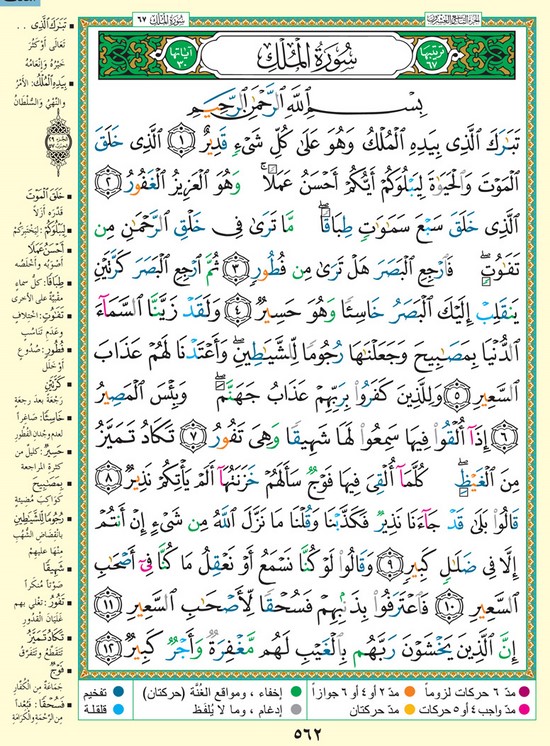 الجزء التاسع والعشرون
سورة الملك ٦٧
ترتيبها ٦٧
سُورَةُ الْمُلْكِ
آياتها ٣٠
بِسْمِ اللَّهِ الرَّحْمَٰنِ الرَّحِيمِ
تَبَٰرَكَ ٱلَّذِى بِيَدِهِ ٱلْمُلْكُ وَهُوَ عَلَىٰ كُلِّ شَىْءٍ قَدِيرٌ ١ ٱلَّذِى خَلَقَ
ٱلْمَوْتَ وَٱلْحَيَوٰةَ لِيَبْلُوَكُمْ أَيُّكُمْ أَحْسَنُ عَمَلًا ۚ وَهُوَ ٱلْعَزِيزُ ٱلْغَفُورُ ٢
ٱلَّذِى خَلَقَ سَبْعَ سَمَٰوَٰتٍ طِبَاقًا ۖ مَّا تَرَىٰ فِى خَلْقِ ٱلرَّحْمَٰنِ مِن
تَفَٰوُتٍ ۖ فَٱرْجِعِ ٱلْبَصَرَ هَلْ تَرَىٰ مِن فُطُورٍ ٣ ثُمَّ ٱرْجِعِ ٱلْبَصَرَ كَرَّتَيْنِ
يَنقَلِبْ إِلَيْكَ ٱلْبَصَرُ خَاسِئًا وَهُوَ حَسِيرٌ ٤ وَلَقَدْ زَيَّنَّا ٱلسَّمَآءَ
ٱلدُّنْيَا بِمَصَٰبِيحَ وَجَعَلْنَٰهَا رُجُومًا لِّلشَّيَٰطِينِ ۖ وَأَعْتَدْنَا لَهُمْ عَذَابَ
ٱلسَّعِيرِ ٥ وَلِلَّذِينَ كَفَرُوا۟ بِرَبِّهِمْ عَذَابُ جَهَنَّمَ ۖ وَبِئْسَ ٱلْمَصِيرُ
٦ إِذَآ أُلْقُوا۟ فِيهَا سَمِعُوا۟ لَهَا شَهِيقًا وَهِىَ تَفُورُ ٧ تَكَادُ تَمَيَّزُ
مِنَ ٱلْغَيْظِ ۖ كُلَّمَآ أُلْقِىَ فِيهَا فَوْجٌ سَأَلَهُمْ خَزَنَتُهَآ أَلَمْ يَأْتِكُمْ نَذِيرٌ ٨
قَالُوا۟ بَلَىٰ قَدْ جَآءَنَا نَذِيرٌ فَكَذَّبْنَا وَقُلْنَا مَا نَزَّلَ ٱللَّهُ مِن شَىْءٍ إِنْ أَنتُمْ
إِلَّا فِى ضَلَٰلٍ كَبِيرٍ ٩ وَقَالُوا۟ لَوْ كُنَّا نَسْمَعُ أَوْ نَعْقِلُ مَا كُنَّا فِىٓ أَصْحَٰبِ
ٱلسَّعِيرِ ١٠ فَٱعْتَرَفُوا۟ بِذَنۢبِهِمْ فَسُحْقًا لِّأَصْحَٰبِ ٱلسَّعِيرِ ١١
إِنَّ ٱلَّذِينَ يَخْشَوْنَ رَبَّهُم بِٱلْغَيْبِ لَهُم مَّغْفِرَةٌ وَأَجْرٌ كَبِيرٌ ١٢
تَبَارَكَ الَّذِي ..
تَعَالَى أَوْ كَثُرَ
خَيْرُهُ وَإِنْعَامُهُ
بِيَدِهِ الْمُلْكُ: الأَمْرُ
وَالنَّهْيُ وَالسُّلْطَانُ
خَلَقَ الْمَوْتَ
قَدَّرَهُ أَزَلًا
لِيَبْلُوَكُمْ: لِيَخْتَبِرَكُمْ
أَحْسَنُ عَمَلًا
أَصْوَبُهُ وَأَخْلَصُهُ
طِبَاقًا: كلّ سماءٍ
مقبيّة على الأخرى
تَفَاوُتٍ: اختلافٍ
وعَدَمِ تَنَاسُبٍ
فُطُورٍ: صُدُوعٍ
أَوْ خَلَلٍ
كَرَّتَيْنِ
رَجْعَةً بعدَ رجعةٍ
خَاسِئًا: صَاغِراً
لعدم وجدان الفُطُورِ
حَسِيرٌ: كَلِيلٌ من
كثرة المراجعة
بِمَصَابِيحَ
كَوَاكِبَ مُضِيئَةٍ
رُجُومًا لِلشَّيَاطِينِ
بانْقِضَاضِ الشُّهُبِ
مِنْهَا عليهم
شَهِيقًا
صَوْتاً مُنكَراً
تَفُورُ: تَغْلِي بهم
غَلَيَانَ القُدُورِ
تَكَادُ تَمَيَّزُ
تَتَقَطَّعُ وتَتَفَرَّقُ
فَوْجٌ
جَمَاعَةٌ مِنَ الكُفَّارِ
فَسُحْقًا: فَبُعْداً
مِنَ الرَّحْمَةِ وَالْكَرَامَةِ
مدّ ٦ حركات لزوماً مدّ ٢ أو ٤ أو ٦ جوازاً إخفاء ، ومواقع الغُنَّة (حركتان) تفخيم
مدّ واجب ٤ أو ٥ حركات مدّ حركتان إدغام ، وما لا يُلفَظ قلقلة
٥٦٢